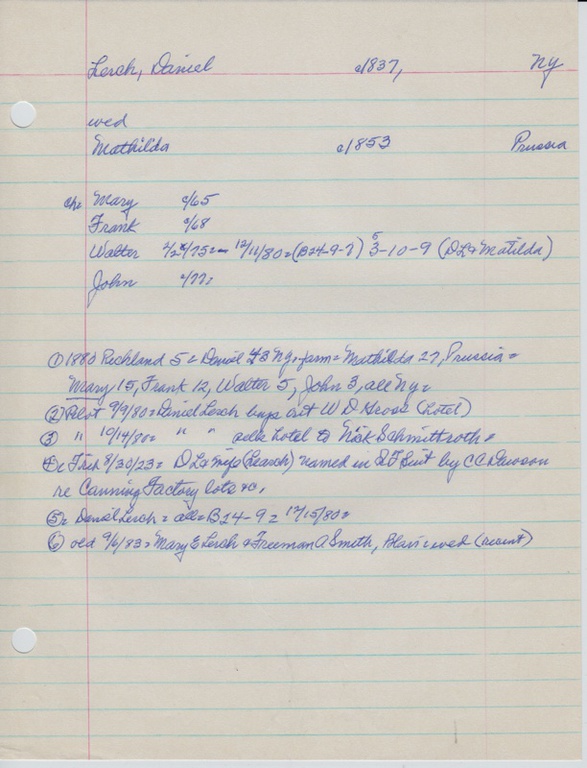 Lerch, Daniel c1837, NY
wed
Mathilda c1853 Prussia
ch= Mary c/65
Frank c/68
Walter 2/24/75 = 12/11/80 = (B24-9-7) 3-10-9 (DL & Matilda)
John c/77=
① 1880 Richland 5 = Daniel 43 NY, farm = Mathilda 27, Prussia =
Mary 15, Frank 12, Walter 5, John 3, all NY =
② Pilot 9/9/80 = Daniel Lerch buys out W D Gross (hotel)
③ " 10/14/80 = " " sells hotel to Nick Schmittroth =
④ 8/30/23 = D L & wife (Learch) named in Suit by CC Dawson
re Canning Factory lots &c,
⑤ = Daniel Lerch = = B24-9 = 12/15/80 =
⑥ 9/6/83 = Mary E Lerch & Freeman A Smith, wed (recent)